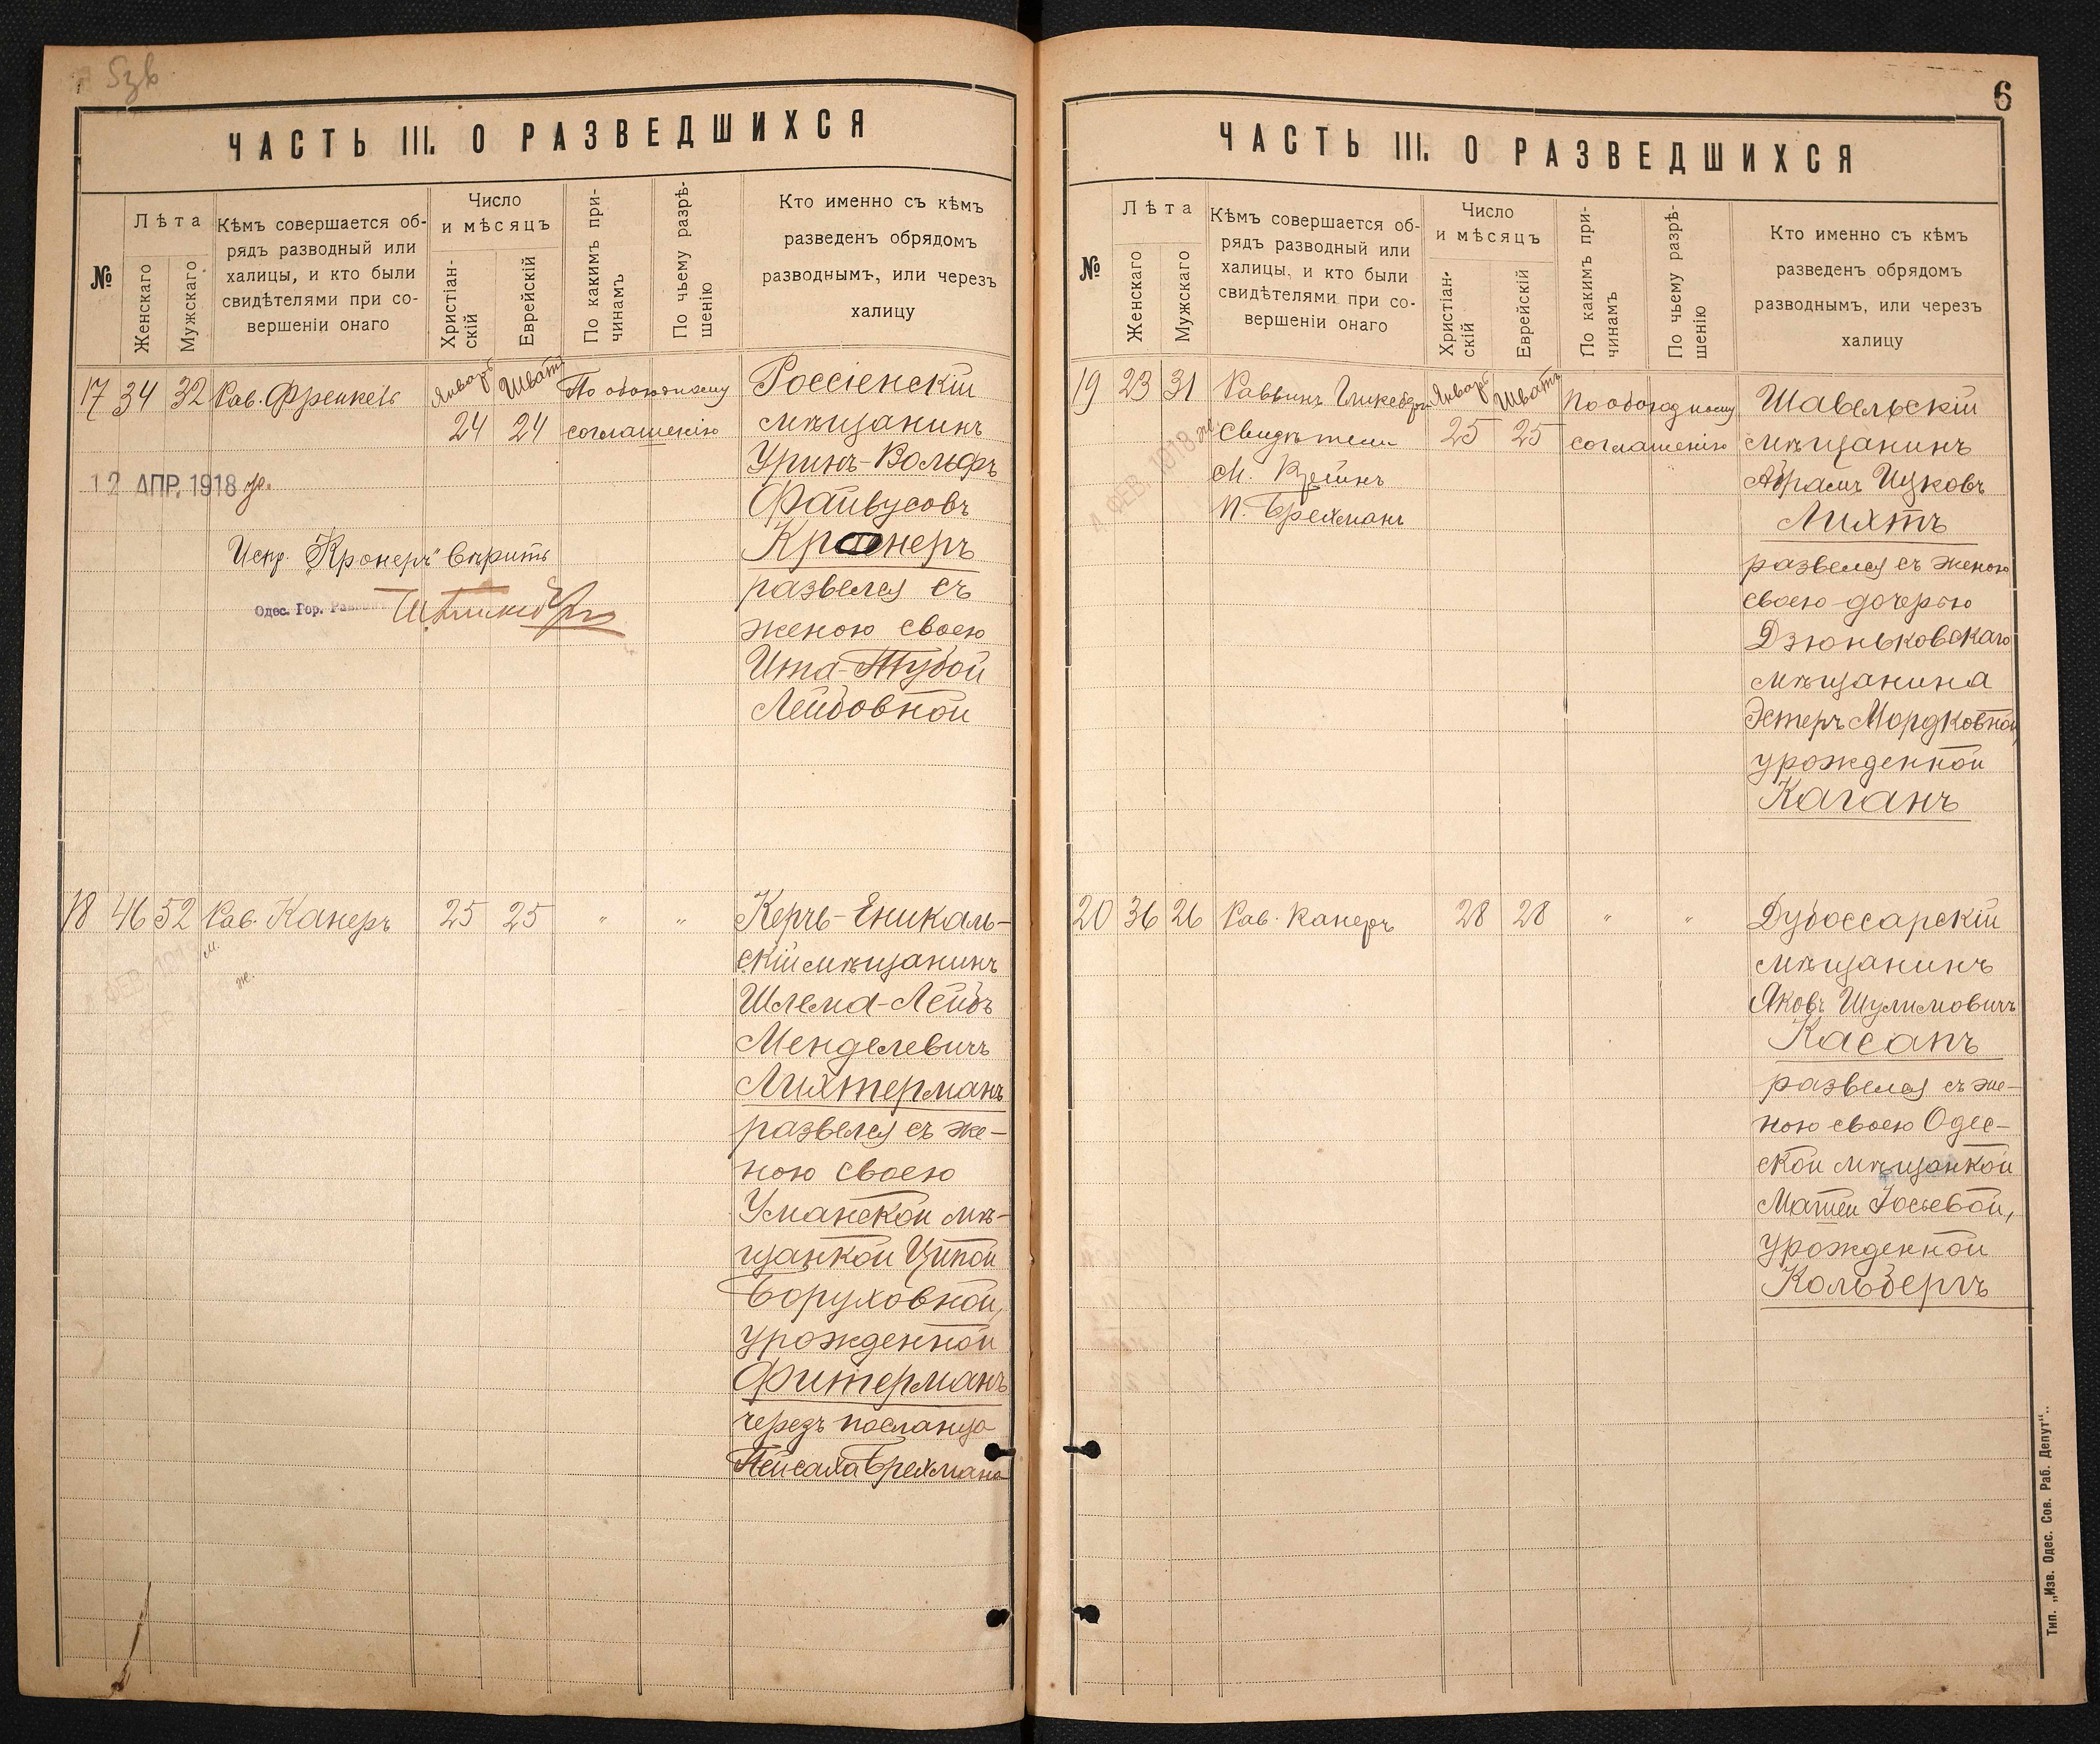 5зв
ЧАСТЬ III. О РАЗВЕДШИХСЯ
№
Лѣта
Женскаго
Мужскаго
Кѣмъ совершается об-
рядъ разводный или
халицы, и кто были
свидѣтелями при со-
вершеніи онаго
Число
и мѣсяцъ
Христіан-
скій
Еврейскій
По какимъ при-
чинамъ
По чьему разрѣ-
шенію
Кто именно съ кѣмъ
разведенъ обрядомъ
разводнымъ, или через
халицу
17 34 32 Рав. Френкель Январь 24 Шватъ 24 По обоюдному
соглашенію
Россіенскій
мѣщанинъ
Уринъ-Вольфъ
Файвусовъ
Кронеръ
развелся съ
женою своею
Ита-Тубой
Лейбовной
12 АПР. 1918 ж.
Испр. „Кронеръ" вѣрить
Одес. Гор. Раввинъ
18 46 52 Рав. Канеръ 25 25 " "
Керчь-Еникаль-
скій мѣщанинъ
Шлема-Лейбъ
Менделевичъ
Лихтерманъ
развелся съ же-
ною своею
Уманской мѣ-
щанкой Ципой
Боруховной,
урожденной
Фитерманъ
черезъ посланца
Пейсаха Брехмана
ФЕВ. 191
м.
ж.
6
ЧАСТЬ III. О РАЗВЕДШИХСЯ
№
Лѣта
Женскаго
Мужскаго
Кѣмъ совершается об-
рядъ разводный или
халицы, и кто были
свидѣтелями при со-
вершеніи онаго
Число
и мѣсяцъ
Христіан-
скій
Еврейскій
По какимъ при-
чинамъ
По чьему разрѣ-
шенію
Кто именно съ кѣмъ
разведенъ обрядомъ
разводнымъ, или через
халицу
19 23 31 Раввинъ Гликсбергъ
Свидѣтели
М. Крейнъ
П. Брехманъ
Январь 25 Шватъ 25 По обоюдному
соглашенію
ФЕВ. 1918 ж.
Шавельскій
мѣщанинъ
Абрамъ Ицковъ
Лихтъ
развелся съ женою
своею дочерью
Дзюньковскаго
мѣщанина
Эстеръ Мордковной,
урожденной
Каганъ
20 36 26 Рав. Канеръ 28 28 " "
Дубоссарскій
мѣщанинъ
Яковъ Шулимовичъ
Касапъ
развелся съ же-
ною своею Одес-
ской мѣщанкой
Матлей Іосьевой,
урожденной
Кольбергъ
Тип. „Изв. Одес. Сов. Раб. Депут".